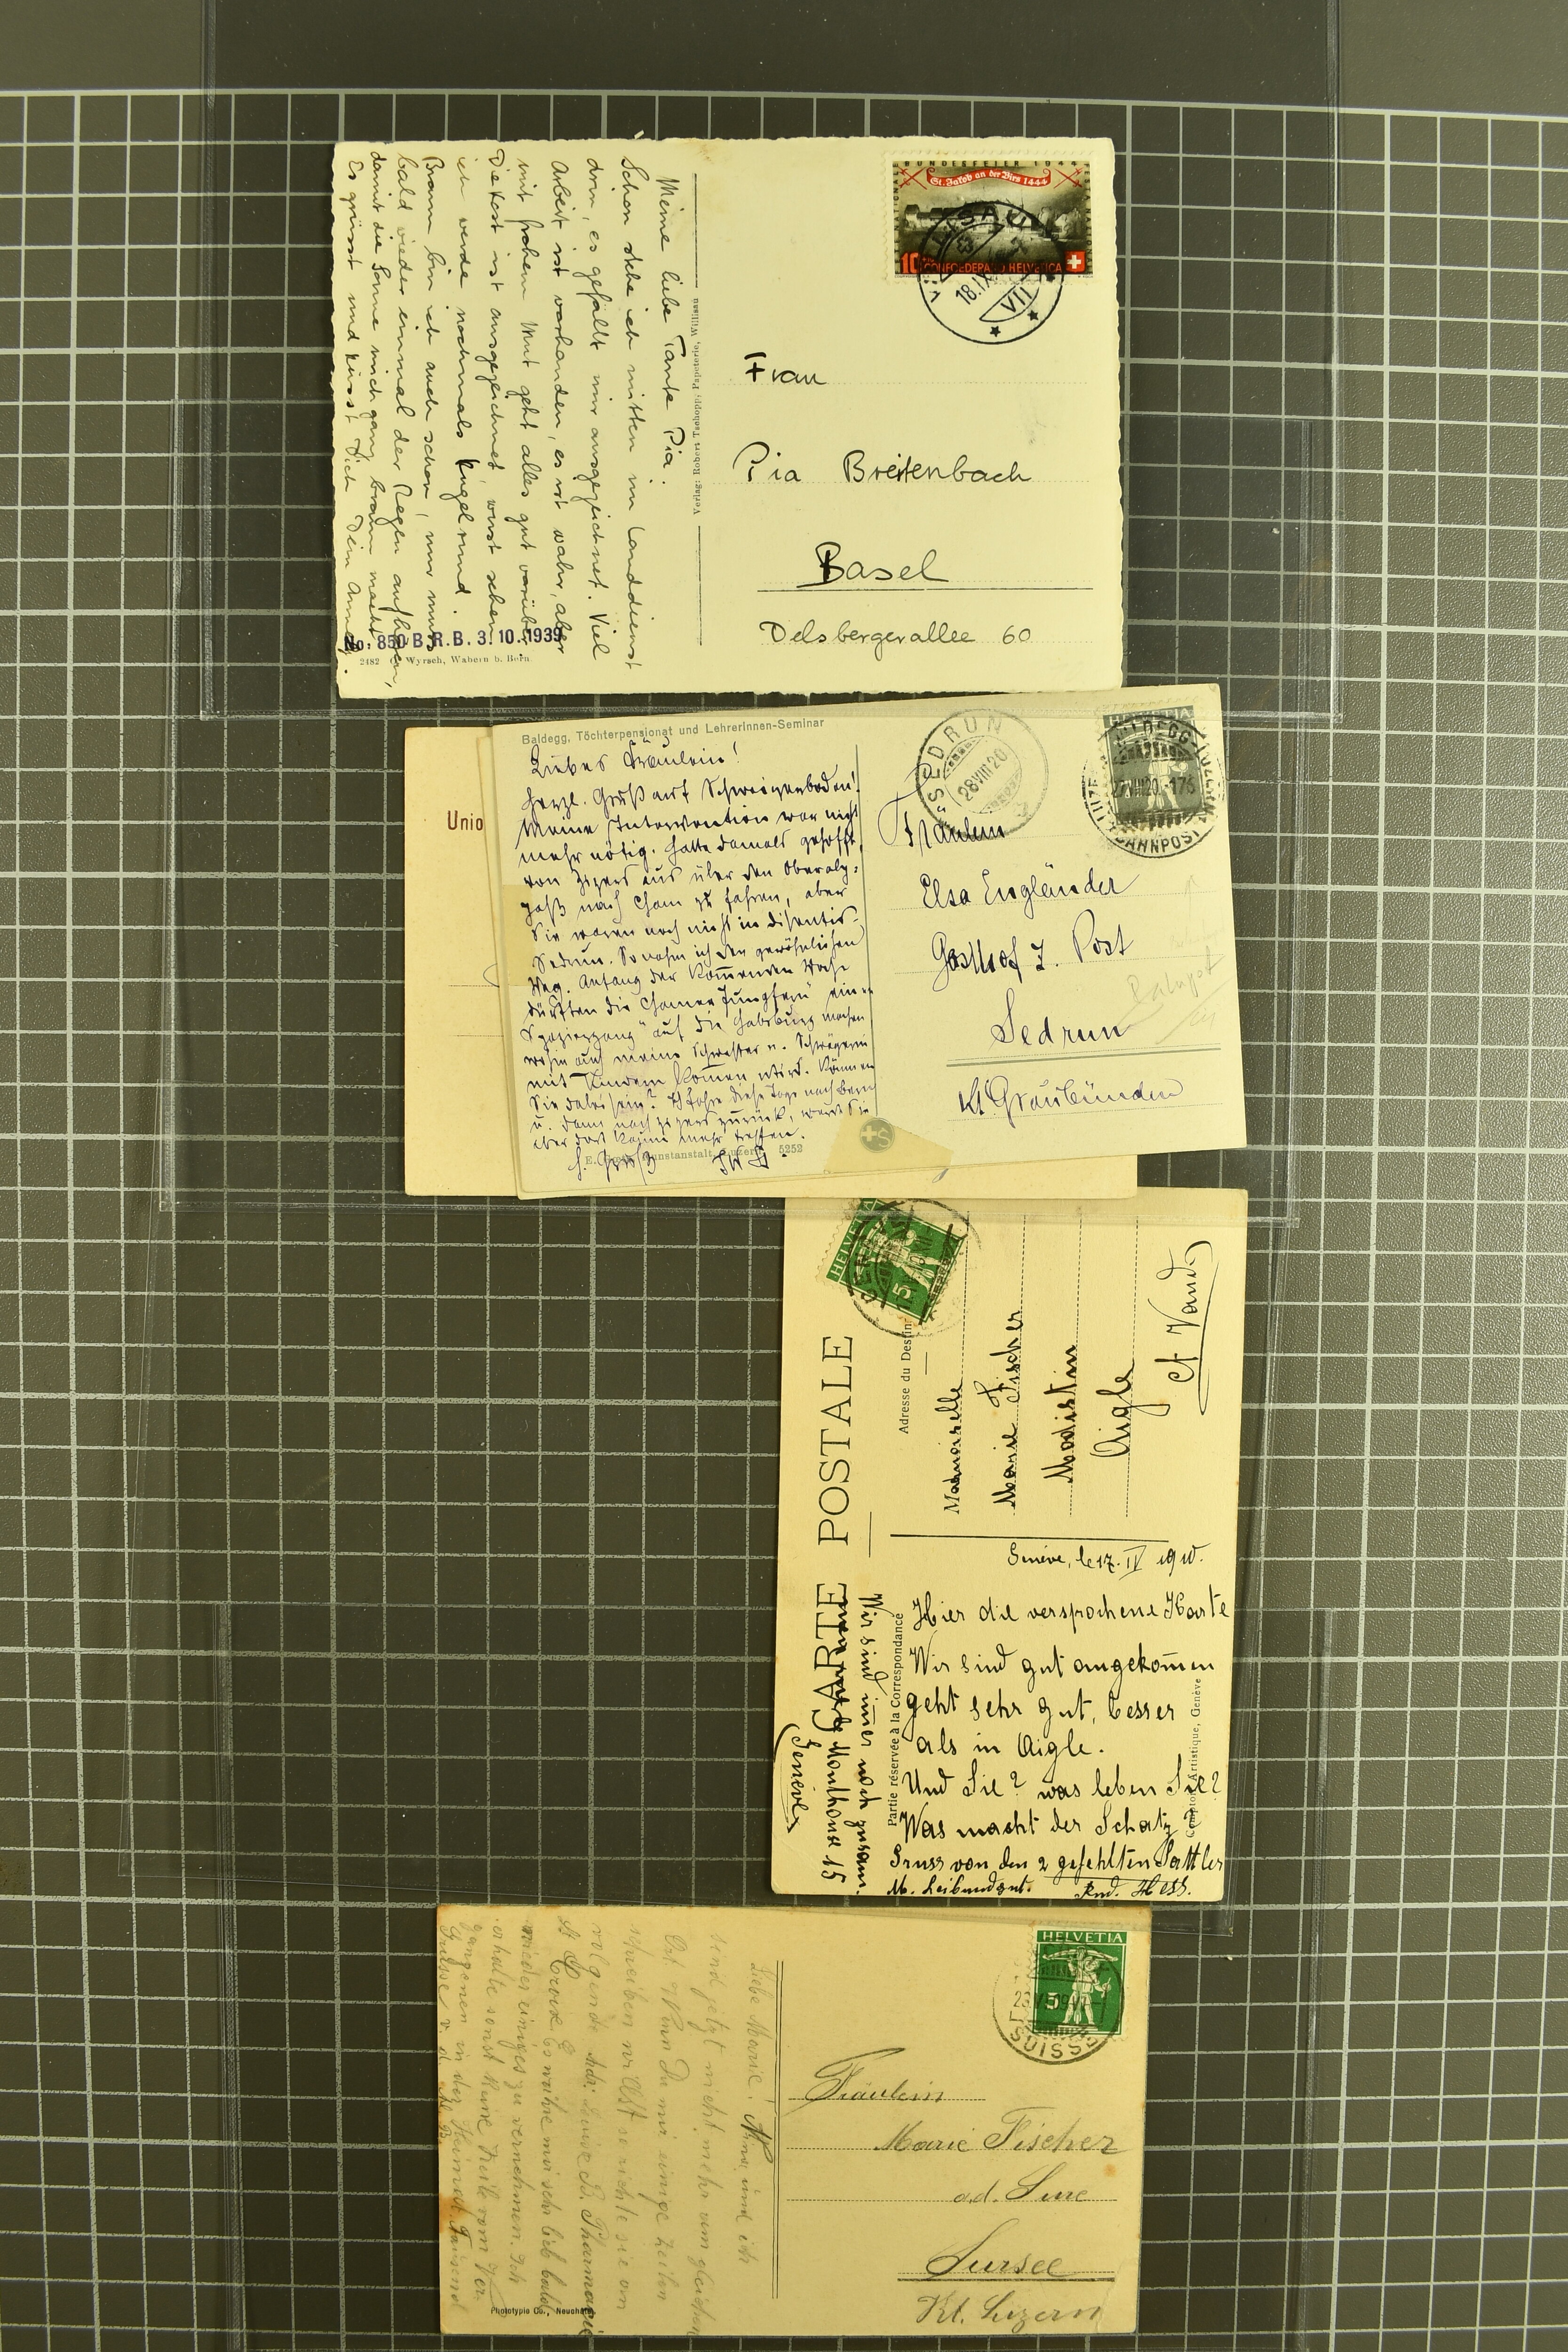 BUNDESFEIER 1944
St. Jakob an der Birs 1444
10
CONFOEDERATIO HELVETICA
18.IX
VII
Frau
Pia Breitenbach
Basel
Delsbergerallee 60
Verlag: Robert Tschopp, Papeterie, Willisau
Meine liebe Tante Pia.
Schon stehe ich mitten im Landdienst
drin, es gefällt mir ausgezeichnet. Viel
Arbeit ist vorhanden, es ist wahr, aber
mit frohem Mut geht alles gut vorüber.
Die Kost ist ausgezeichnet, wirst sehen
ich werde nochmals kugelrund.
Braun bin ich auch schon, nur muss
bald wieder einmal der Regen aufhören,
damit die Sonne mich ganz braun macht.
Es grüsst und küsst Dich Dein
No. 850 B.R.B. 3.10.1939
2482 G. Wyrsch, Wabern b. Bern
Unio
Baldegg, Töchterpensionat und Lehrerinnen-Seminar
Liebes Fräulein!
Herzl. Gruß aus Schweigenboden!
Meine Intervention war nicht
mehr nötig. Hatte damals gehofft,
von Zizers aus über den Oberalp-
paß nach Cham zu fahren, aber
Sie waren noch nicht in Disentis-
Sedrun. So nahm ich den gewöhnlichen
Weg. Anfang der kommenden Woche
dürften die Chamer "Jungfern" einen
Spaziergang auf die Habsburg machen
wohin auch meine Schwester u. Schwägerin
mit Kindern kommen wird. Können
Sie dabei sein? Ich fahre diese Tage nach Bern
u. dann nach Zizers zurück, werde Sie
aber dort kaum mehr treffen.
H. Gruß
Kunstanstalt, Luzern 5252
SEDRUN
28.VIII.20
HELVETIA
WILDEGG-LUZERN
27.VIII.20.-176
BAHNPOST
Fräulein
Elsa Engländer
Gasthof z. Post
Sedrun
Kt. Graubünden
HELVETIA
5
CARTE POSTALE
Adresse du Destin
Mademoiselle
Marie Fischer
Modistin
Aigle
Ct Vaud
Partie réservée à la Correspondance
Genève, le 17. IV 1910.
Hier die versprochene Karte
Wir sind gut angekommen
geht sehr gut, besser
als in Aigle.
Und Sie? was leben Sie?
Was macht der Schatz?
Gruss von den 2 gefehlten Sattler
M. Leibundgut. Rud. Hess.
Wir sind immer noch zusam.
Monthoux 15
Genève
Artistique, Genève
HELVETIA
5
SUISSE
Fräulein
Marie Fischer
a.d. Sure
Sursee
Kt. Luzern
Liebe Marie! Anna und ich
sind jetzt nicht mehr am gleichen
Ort. Wenn Du mir einige Zeilen
schreiben willst so richte sie an
folgende Adr: Luise B. Pharmacie
St Croix. Es würde mich sehr lieb bald
wieder einiges zu vernehmen. Ich
erhalte sonst keine Zeile vom Ver-
gangenen in der Heimat. Tausend
Grüsse v. d.
Phototypie Co., Neuchâtel